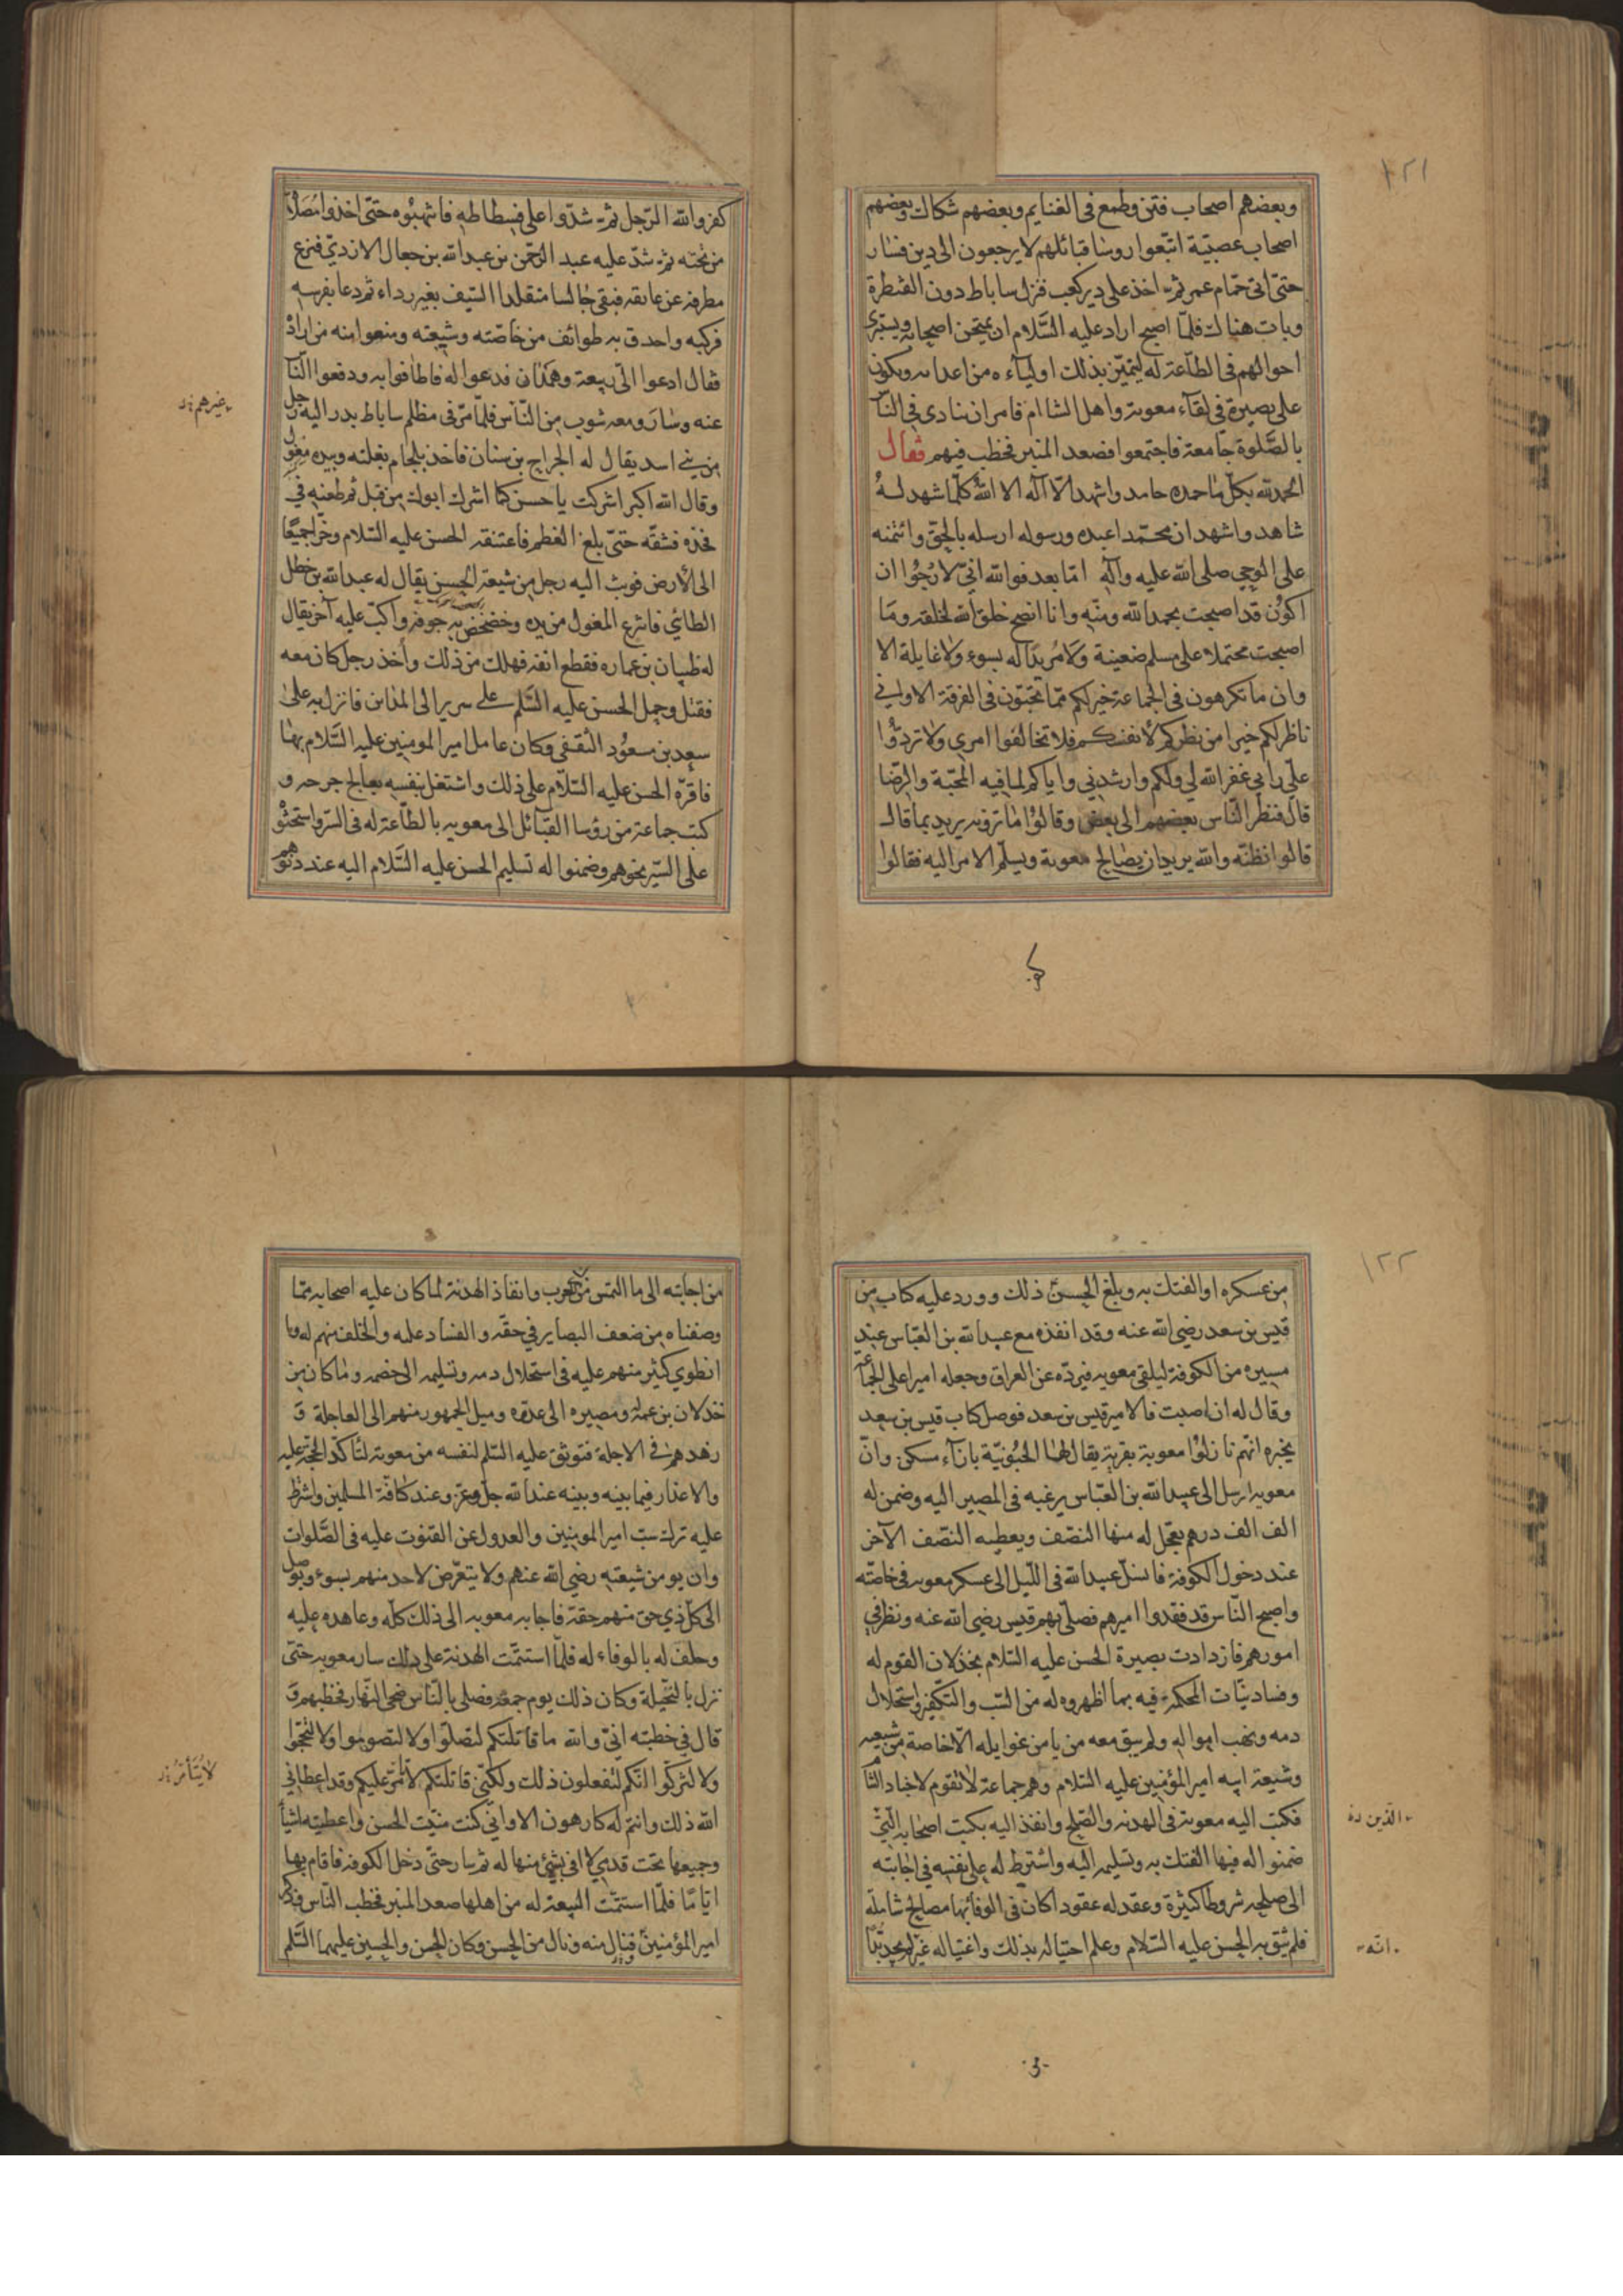 ١٢١
وبعضهم اصحاب فتن وطمع فى الغنايم وبعضهم شكاك وبعضهم
اصحاب عصبيّة اتبّعوا روسا قبائلهم لا يرجعون الى دين فسار
حتىّ اتى حمّام عمر ثمّ اخذ على دير كعب فنزل ساباط دون القنطرة
وبات هنالك فلمّا اصبح اراد عليه السَّلام ان يمتحن اصحابه ويستبرئ
احوالهم فى الطاعة له ليتميّز بذلك اولياءه من اعدائه ويكون
على بصيرة فى لقاء معوية واهل الشام فامر ان ينادى فى النا
بالصَّلوة جامعة فاجتمعوا فصعد المنبر فخطب فيهم فقال
الحمدلله بكلّ ما حمده حامد واشهد الاّ اله الا الله كلّما شهد له
شاهد واشهد ان محمّدا عبده ورسوله ارسله بالحقّ وائتمنه
على الوحى صلى الله عليه وآله امّا بعد فوالله انّى لارجوا ان
اكون قد اصبحت بحمد الله ومنّه وانا انصح خلق الله لخلقه وما
اصبحت محتملا على مسلم ضغينة ولا مريدا له بسوء ولا غايلة الا
وان ما تكرهون فى الجماعة خير لكم ممّا تحبّون فى الفرقة الا وانى
ناظر لكم خيرا من نظركم لأنفسكم فلا تخالفوا امرى ولا تردّوا
علىّ رأيى غفر الله لى ولكم وارشدنى واياكم لما فيه المحبّة والرّضا
قال فنظر النّاس بعضهم الى بعض وقالوا ما ترونه يريد بما قال
قالوا نظنّه والله يريد ان يصالح معوية ويسلّم الامر اليه فقالوا
كفر والله الرّجل ثمّ شدّوا على فسطاطه فانتهبوه حتىّ اخذوا مصلاه
من تحته ثمّ شدّ عليه عبد الرّحمن بن عبدالله بن جعال الازدىّ فنزع
مطرفه عن عاتقه فبقى جالسا متقلدا السّيف بغير رداء ثم دعا بفرسه
فركبه واحدق به طوائف من خاصّته وشيعته ومنعوا منه من اراد
فقال ادعوا الىّ ربيعة وهمدان فدعوا له فاطافوا به ودفعوا النّا
عنه وسار ومعه شوب من النّاس فلمّا مرّ فى مظلم ساباط بدر اليه رجل
غيرهم
من بنى اسد يقال له الجراح بن سنان فاخذ بلجام بغلته وبيده مغول
وقال الله اكبر اشركت يا حسن كما اشرك ابوك من قبل ثم طعنه فى
فخذه فشقّه حتىّ بلغ العظم فاعتنقه الحسن عليه السّلام وخرا جميعًا
الى الأرض فوثب اليه رجل من شيعة الحسن يقال له عبد الله بن خطل
الطائى فانتزع المغول من يده وخضخض به جوفه واكبّ عليه آخر يقال
له ظبيان بن عماره فقطع انفه فهلك من ذلك وأخذ رجل كان معه
فقتل وحمل الحسن عليه السَّلم على سرير الى المداين فانزل به على
سعد بن مسعود الثقفى وكان عامل امير المومنين عليه السَّلام بها
فاقرّه الحسن عليه السّلام على ذلك واشتغل بنفسه يعالج جرحه و
كتب جماعة من رؤسا القبائل الى معويه بالطّاعة له فى السّر واستحثوه
على السّير نحوهم وضمنوا له تسليم الحسن عليه السَّلام اليه عند دنوّهم
١٢٢
من عسكره او الفتك به وبلغ الحسن ذلك وورد عليه كتاب من
قيس بن سعد رضى الله عنه وقد انفذه مع عبيد الله بن العبّاس عند
مسيره من الكوفة ليلقى معويه فيردّه عن العراق وجعله اميرا على الجماعة
وقال له ان اصبت فالامير قيس بن سعد فوصل كتاب قيس بن سعد
يخبره انهّم نازلوا معوية بقرية يقال لها الحبونيّة بازآء مسكن وانّ
معويه ارسل الى عبيد الله بن العبّاس يرغبه فى المصير اليه وضمن له
الف الف درهم يعجّل له منها النصّف ويعطيه النصّف الآخر
عند دخول الكوفة فانسلّ عبيد الله فى اللّيل الى عسكر معويه فى خاصّته
واصبح النّاس قد فقدوا اميرهم فصلّى بهم قيس رضى الله عنه ونظر فى
امورهم فازدادت بصيرة الحسن عليه السّلام بخذلان القوم له
وفساد نيّات المحكّمة فيه بما اظهروه له من السّب والتّكفير واستحلال
دمه ونهب امواله ولم يبق معه من يامن غوايله الاّ خاصة من شيعته
وشيعة ابيه امير المؤمنين عليه السّلام وهم جماعة لا تقوم لاجناد الشا
فكتب اليه معوية فى الهدنه والصّلح وانفذ اليه بكتب اصحابه الّتى
الذين
ضمنوا له فيها الفتك به وتسليمه اليه واشترط له على نفسه فى اجابته
الى صلحه شروطا كثيرة وعقد له عقودا كان فى الوفاء بها مصالح شاملة
فلم يثق به الحسن عليه السّلام وعلم احتياله بذلك واغتياله غير انه لم يجد بُدّا
انّه
من اجابته الى ما التمس من الحرب وانفاذ الهدنة لما كان عليه اصحابه ممّا
وصفناه من ضعف البصاير فى حقّه والفساد عليه والخلف منهم له وما
انطوى كثير منهم عليه فى استحلال دمه وتسليمه الى خصمه وما كان من
خذلان بن عمّه له ومصيره الى عدوّه وميل الجمهور منهم الى العاجلة و
زهدهم فى الاجلة فتوثق عليه السّلم لنفسه من معوية لتأكّد الحجّة عليه
والاعذار فيما بينه وبينه عند الله جلّ وعزّ وعند كافّة المسلمين واشترط
عليه ترك سبّ امير المومنين والعدول عن القنوت عليه فى الصَّلوات
وان يومن شيعته رضى الله عنهم ولا يتعرّض لاحد منهم بسوء ويوصل
الى كلّ ذى حق منهم حقّه فاجابه معويه الى ذلك كلّه وعاهده عليه
وحلف له بالوفاء له فلمّا استتمّت الهدنة على ذلك سار معويه حتىّ
نزل بالنّخيلة وكان ذلك يوم جمعة فصلى بالنّاس ضحى النّهار فخطبهم و
قال فى خطبته انىّ والله ما قاتلتكم لتصلّوا ولا لتصوموا ولا لتحجّوا
ولا لتزكّوا انّكم لتفعلون ذلك ولكنّى قاتلتكم لأتأمّر عليكم وقد اعطانى
الله ذلك وانتم له كارهون الا وانّى كنت منّيت الحسن واعطيته اشيأ
وجميعها تحت قدمى لا افى بشئ منها له ثم سار حتىّ دخل الكوفة فاقام بها
ايّامّا فلمّا استتمّت البيعة له من اهلها صعد المنبر فخطب النّاس فذكر
امير المؤمنين فنال منه ونال من الحسن وكان الحسن والحسين عليهما السَّلم